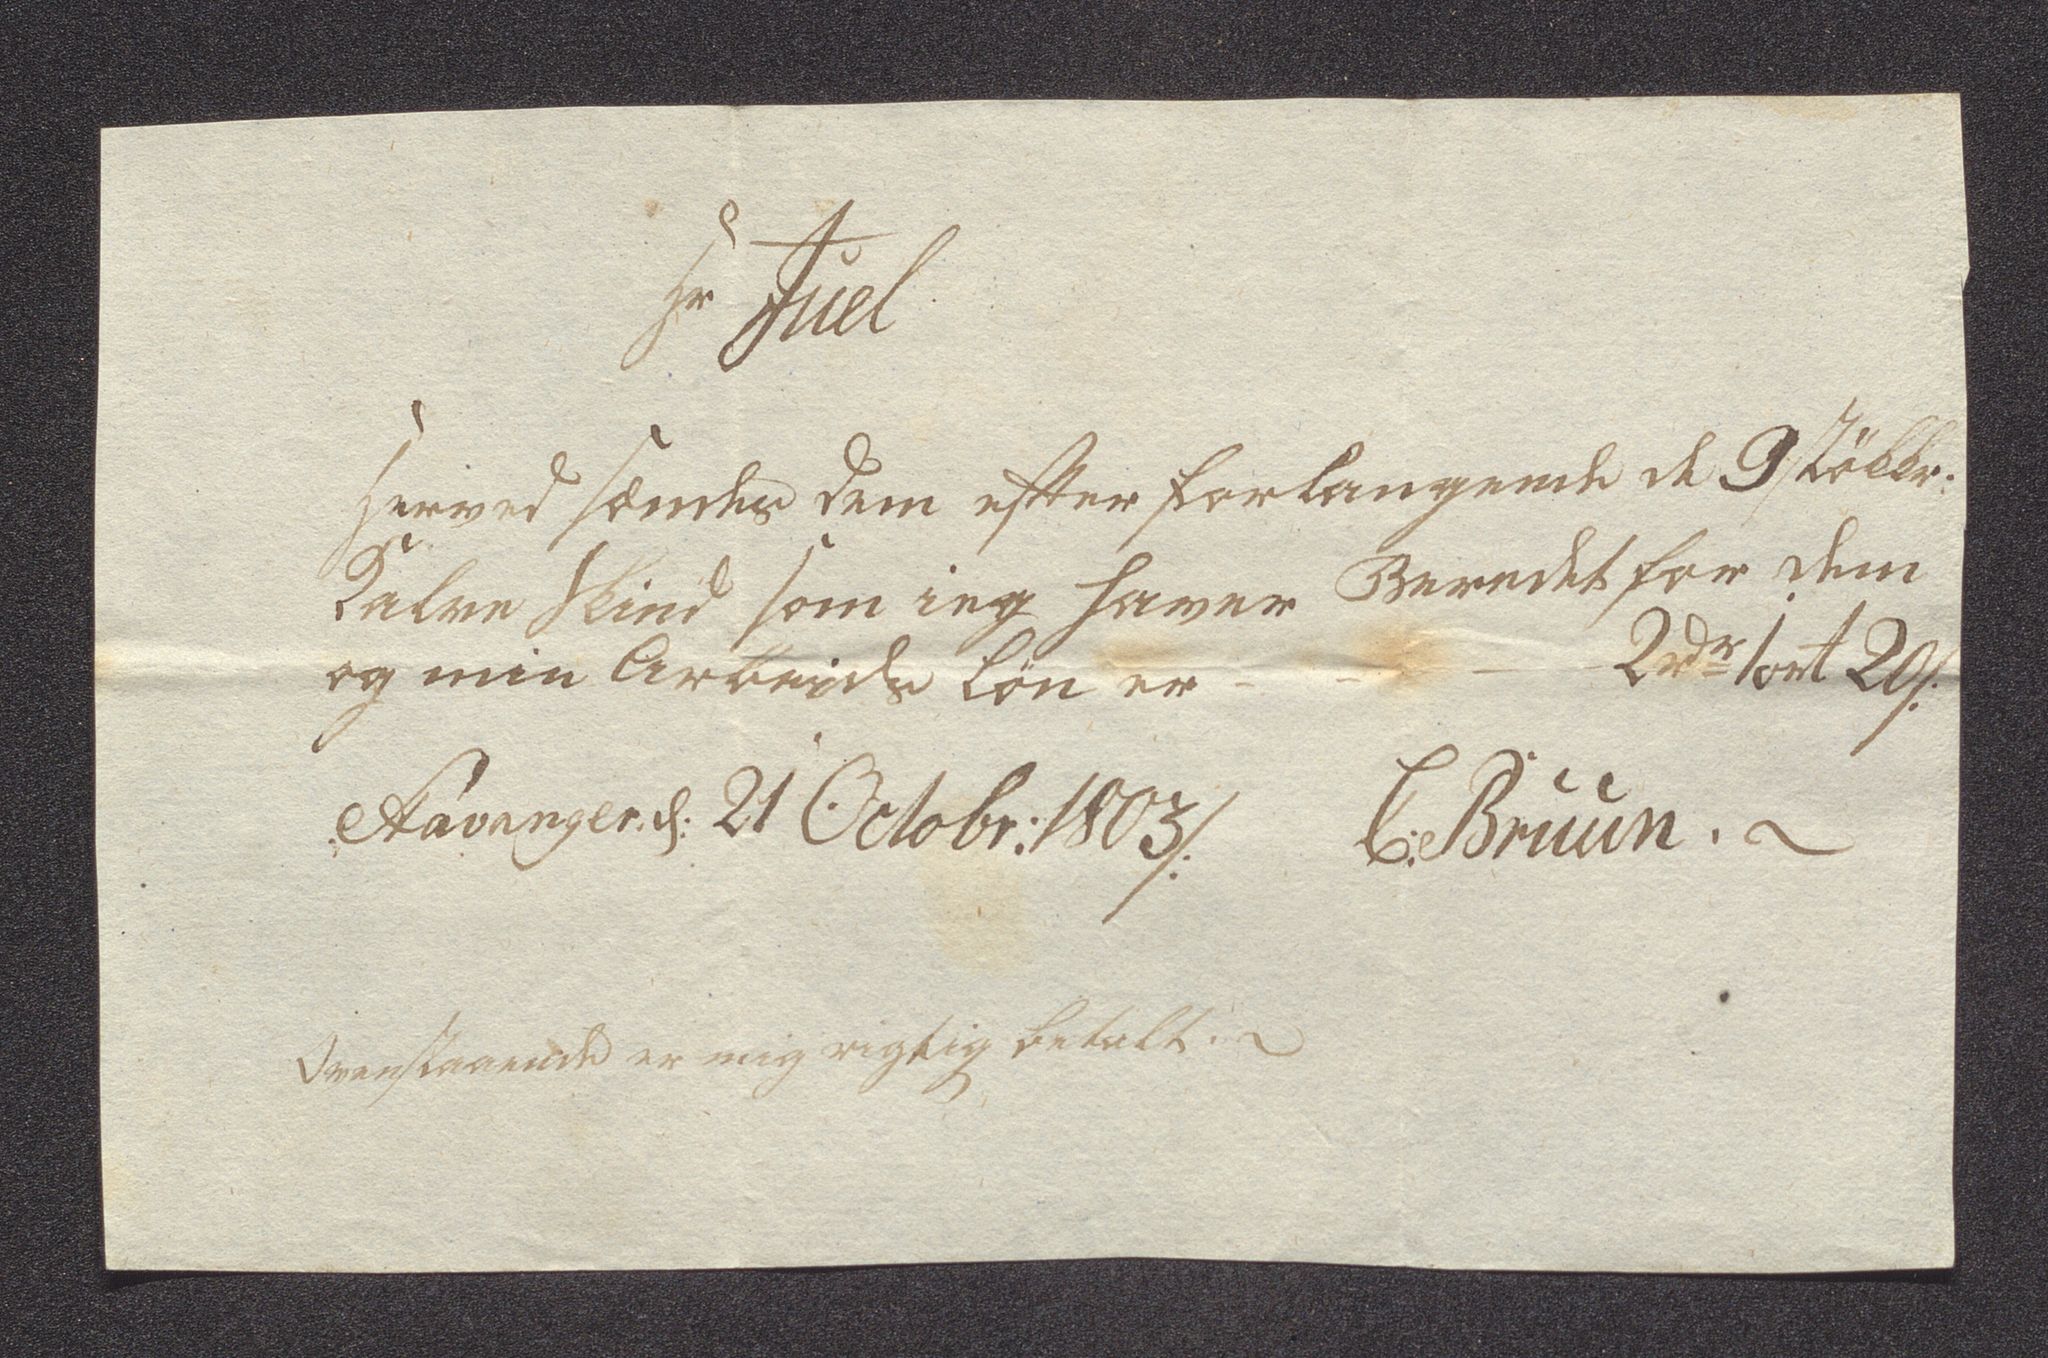 Hr Juel
Herved sendes dem efter forlangende de 9 stökkr:
Kalve Skind som ieg haver Beredet for dem
og min Arbeids Lön er - - - - 2 rdr 1 ort 20 s:
Stavanger. d: 21 Octobr: 1803/.
C: Bruun.
Ovenstaaende er mig rigtig betalt.